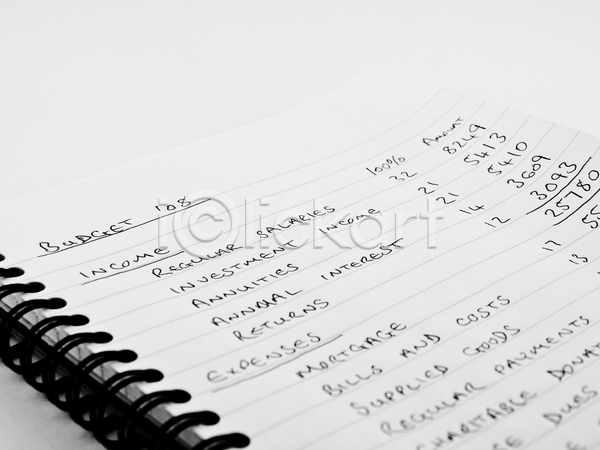 BUDGET '08
INCOME 100% Amount
REGULAR SALARIES 32 8249
INVESTMENT INCOME 21 5413
ANNUITIES 21 5410
ANNUAL INTEREST 14 3609
RETURNS 12 3093
EXPENSES 25780
MORTGAGE 17
BILLS AND COSTS 13
SUPPLIED GOODS
REGULAR PAYMENTS
CHARITABLE
DUES
iclickart